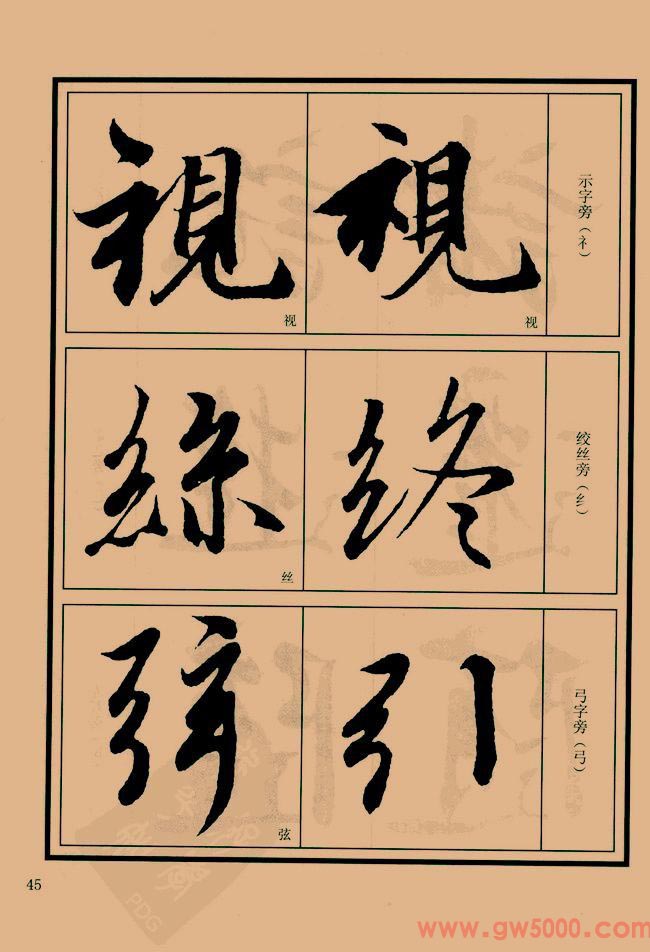 示字旁（礻）
視
视
視
视
绞丝旁（纟）
终
絲
丝
弓字旁（弓）
引
弦
弦
45
PDG
www.gw5000.com